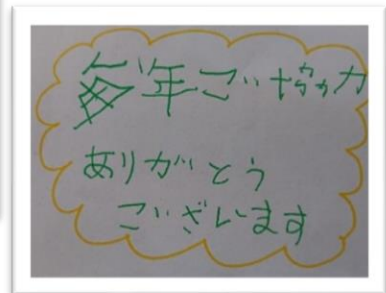 毎年ご協力
ありがとう
ございます